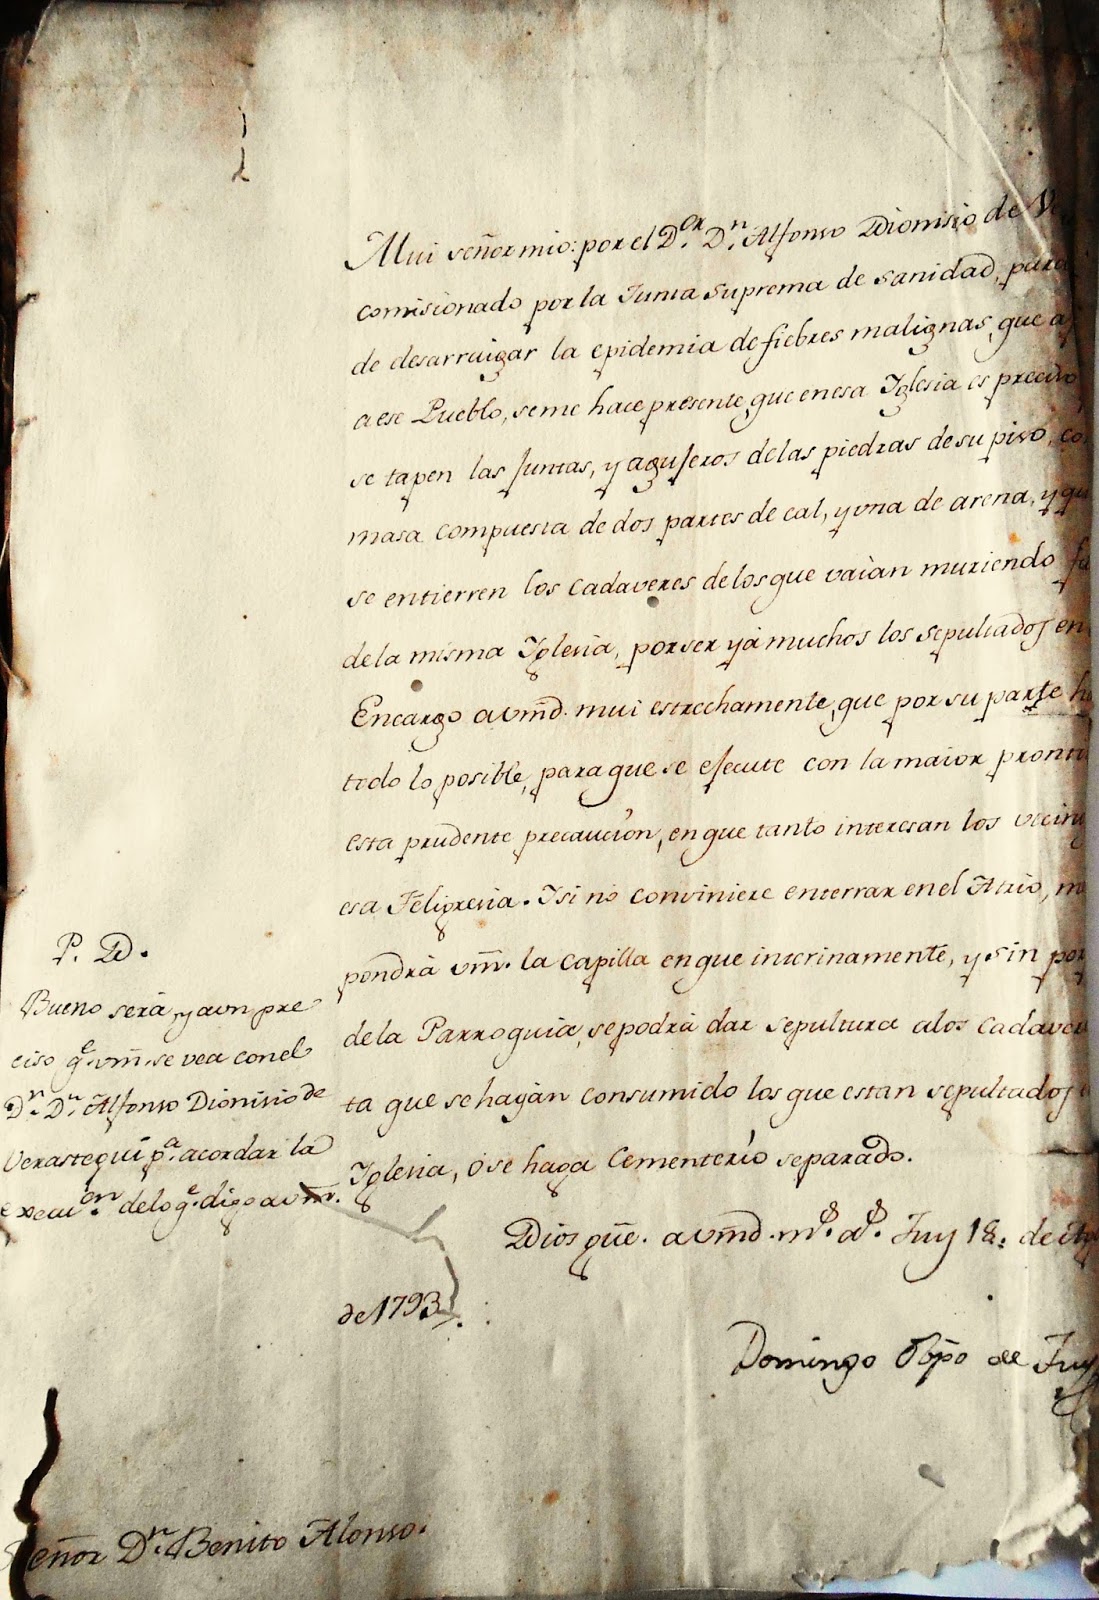 Mui señor mio: por el D.or D.n Alfonso Dionisio de
comisionado por la Junta Suprema de Sanidad, para
de desarraigar la epidemia de fiebres malignas, que
a ese Pueblo, se me hace presente, que en esa Iglesia es preciso
se tapen las Juntas, y agujeros de las piedras de su piso, co
masa compuesta de dos partes de cal, y vna de arena, y qu
se entierren los cadaveres de los que vaian muriendo fu
de la misma Iglesia, por ser yá muchos los sepultados en
Encargo a vm̃d. mui estrechamente, que por su parte ha
todo lo posible, para que se ejecute con la maior pronti
esta prudente precaución, en que tanto interesan los vecin
esa Feligresia. Y si no conviniere enterrar en el Atrio, m
pondrá vm̃. la capilla en que interinamente, y sin per
de la Parroquia, se podrá dar sepultura a los cadaver
ta que se hayán consumido los que estan sepultados
Iglesia, ó se haga Cementerío separado.
Dios güe. a vm̃d. m.s a.s Tuy 18. de Ag
de 1793.
Domingo Obpo de Tuy
P. D.
Bueno será y aun pre
ciso q.e vm̃. se vea con el
D.r D.n Alfonso Dionisio de
Verastegui p.a acordar la
execu.on de lo q.e digo a vm̃.
Señor D.n Benito Alonso.